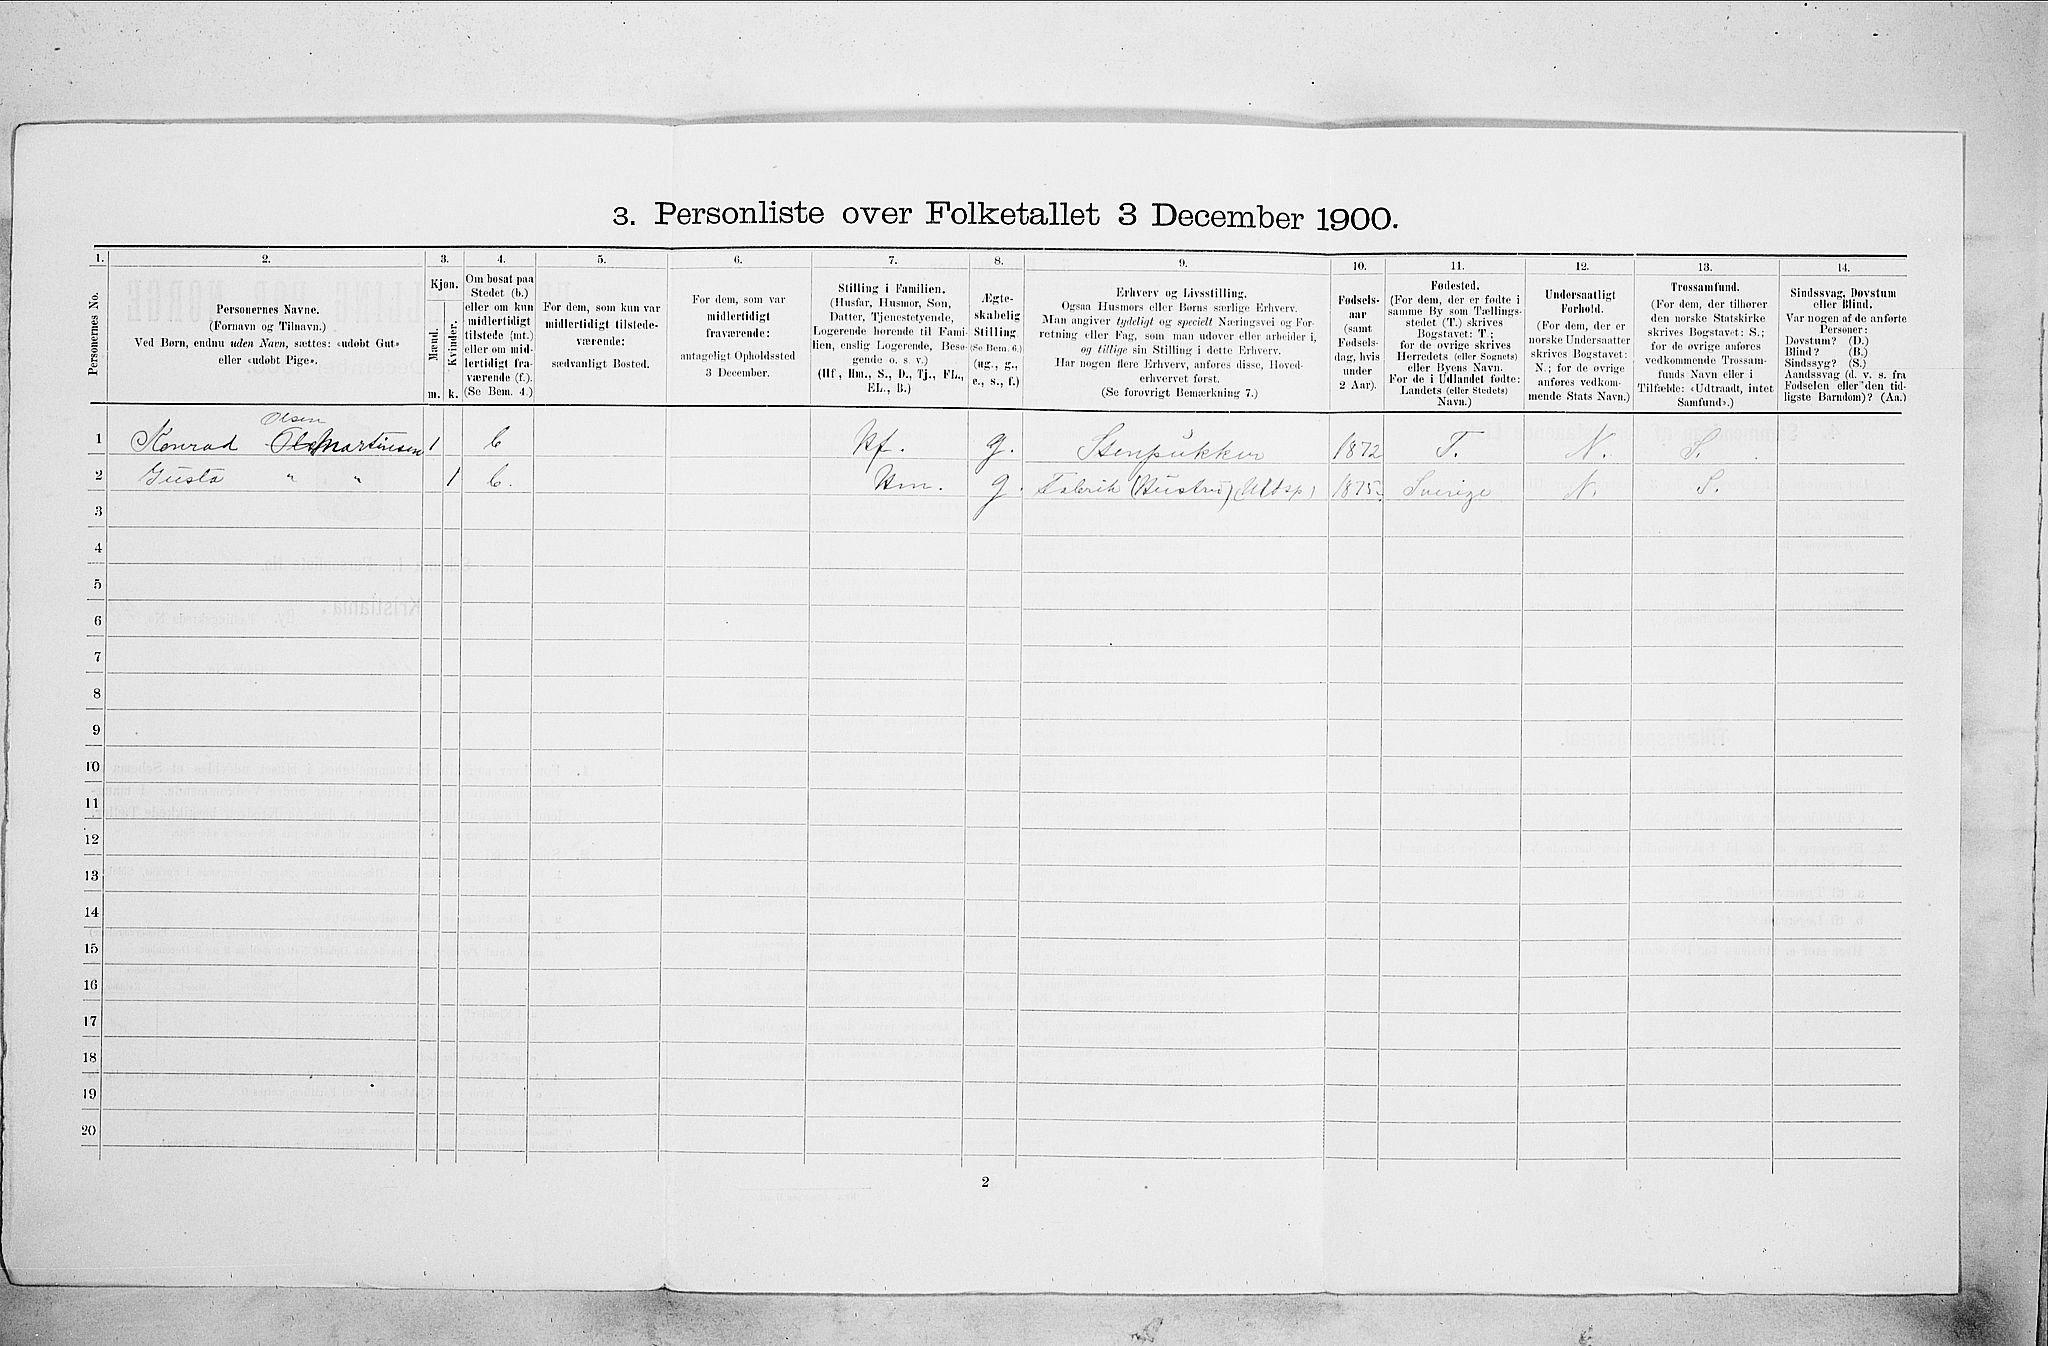 3. Personliste over Folketallet 3 December 1900.
1. 2. 3. 4. 5. 6. 7. 8. 9. 10. 11. 12. 13. 14.
Personernes No.
Personernes Navne.
(Fornavn og Tilnavn.)
Ved Børn, endnu uden Navn, sættes: «udøbt Gut»
eller «udøbt Pige».
Kjøn.
Mænd.
Kvinder.
m. k.
Om bosat paa
Stedet (b.)
eller om kun
midlertidigt
tilstede (mt.)
eller om mid-
lertidigt fra-
værende (f.)
(Se Bem. 4.)
For dem, som kun var
midlertidigt tilstede-
værende:
sædvanligt Bosted.
For dem, som var
midlertidigt
fraværende:
antageligt Opholdssted
3 December.
Stilling i Familien.
(Husfar, Husmor, Søn,
Datter, Tjenestetyende,
Logerende hørende til Fami-
lien, enslig Logerende, Besø-
gende o. s. v.)
(Hf., Hm., S., D., Tj., FL.,
EL., B.)
Ægte-
skabelig
Stilling
(Se Bem. 6.)
(ug., g.,
e., s., f.)
Erhverv og Livsstilling.
Ogsaa Husmors eller Børns særlige Erhverv.
Man angiver tydeligt og specielt Næringsvei og For-
retning eller Fag, som man udøver eller arbeider i,
og tillige sin Stilling i dette Erhverv.
Har nogen flere Erhverv, anføres disse, Hoved-
erhvervet først.
(Se forøvrigt Bemærkning 7.)
Fødsels-
aar
(samt
Fødsels-
dag, hvis
under
2 Aar).
Fødested.
(For dem, der er fødte i
samme By som Tællings-
stedet (T.) skrives
Bogstavet: T;
for de øvrige skrives
Herredets (eller Sognets)
eller Byens Navn.
For de i Udlandet fødte:
Landets (eller Stedets)
Navn.)
Undersaatligt
Forhold.
(For dem, der er
norske Undersaatter
skrives Bogstavet:
N.; for de øvrige
anføres vedkom-
mende Stats Navn.)
Trossamfund.
(For dem, der tilhører
den norske Statskirke
skrives Bogstavet: S.;
for de øvrige anføres
vedkommende Trossam-
funds Navn eller i
Tilfælde: «Udtraadt, intet
Samfund».)
Sindssvag, Døvstum
eller Blind.
Var nogen af de anførte
Personer:
Døvstum? (D.)
Blind? (B.)
Sindssyg? (S.)
Aandssvag (d. v. s. fra
Fødselen eller den tid-
ligste Barndom)? (Aa.)
Olsen
1 Konrad Martinsen 1 b Hf. g. Stenpukker 1872 T. N. S.
2 Gusta " " 1 b. Hm. g. Fabrik (Hustru) (Uldsp) 1875 Sverige N. S.
3
4
5
6
7
8
9
10
11
12
13
14
15
16
17
18
19
20
2